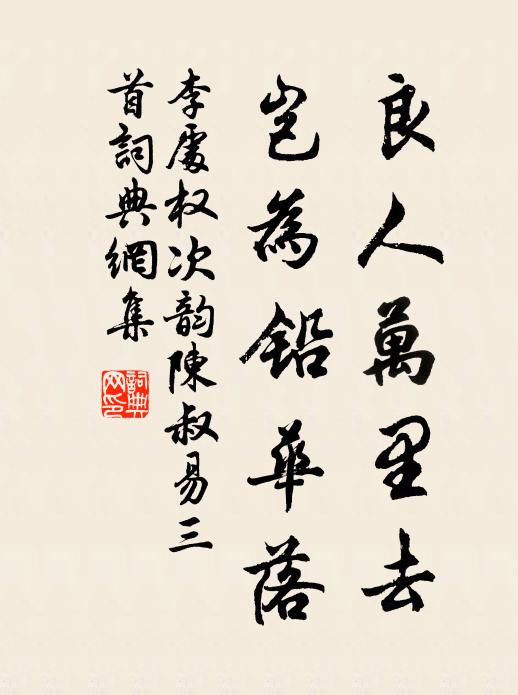 良人萬里去
豈為鉛華落
李處权次韵陳叔易三
首詞典網集
詞典
网印